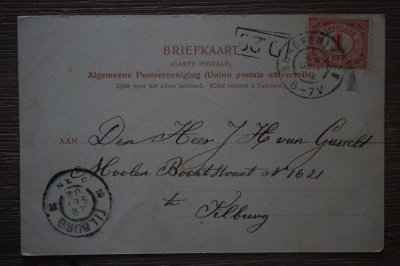 BRIEFKAART
(CARTE POSTALE)
Algemeene Postvereeniging (Union postale universelle)
Zijde voor het adres bestemd. (Côté réservé à l'adresse.)
AAN Den Heer J H van Gusselt
Moolen Bochtstraat No 1621
te Tilburg
6-7V
TILBURG